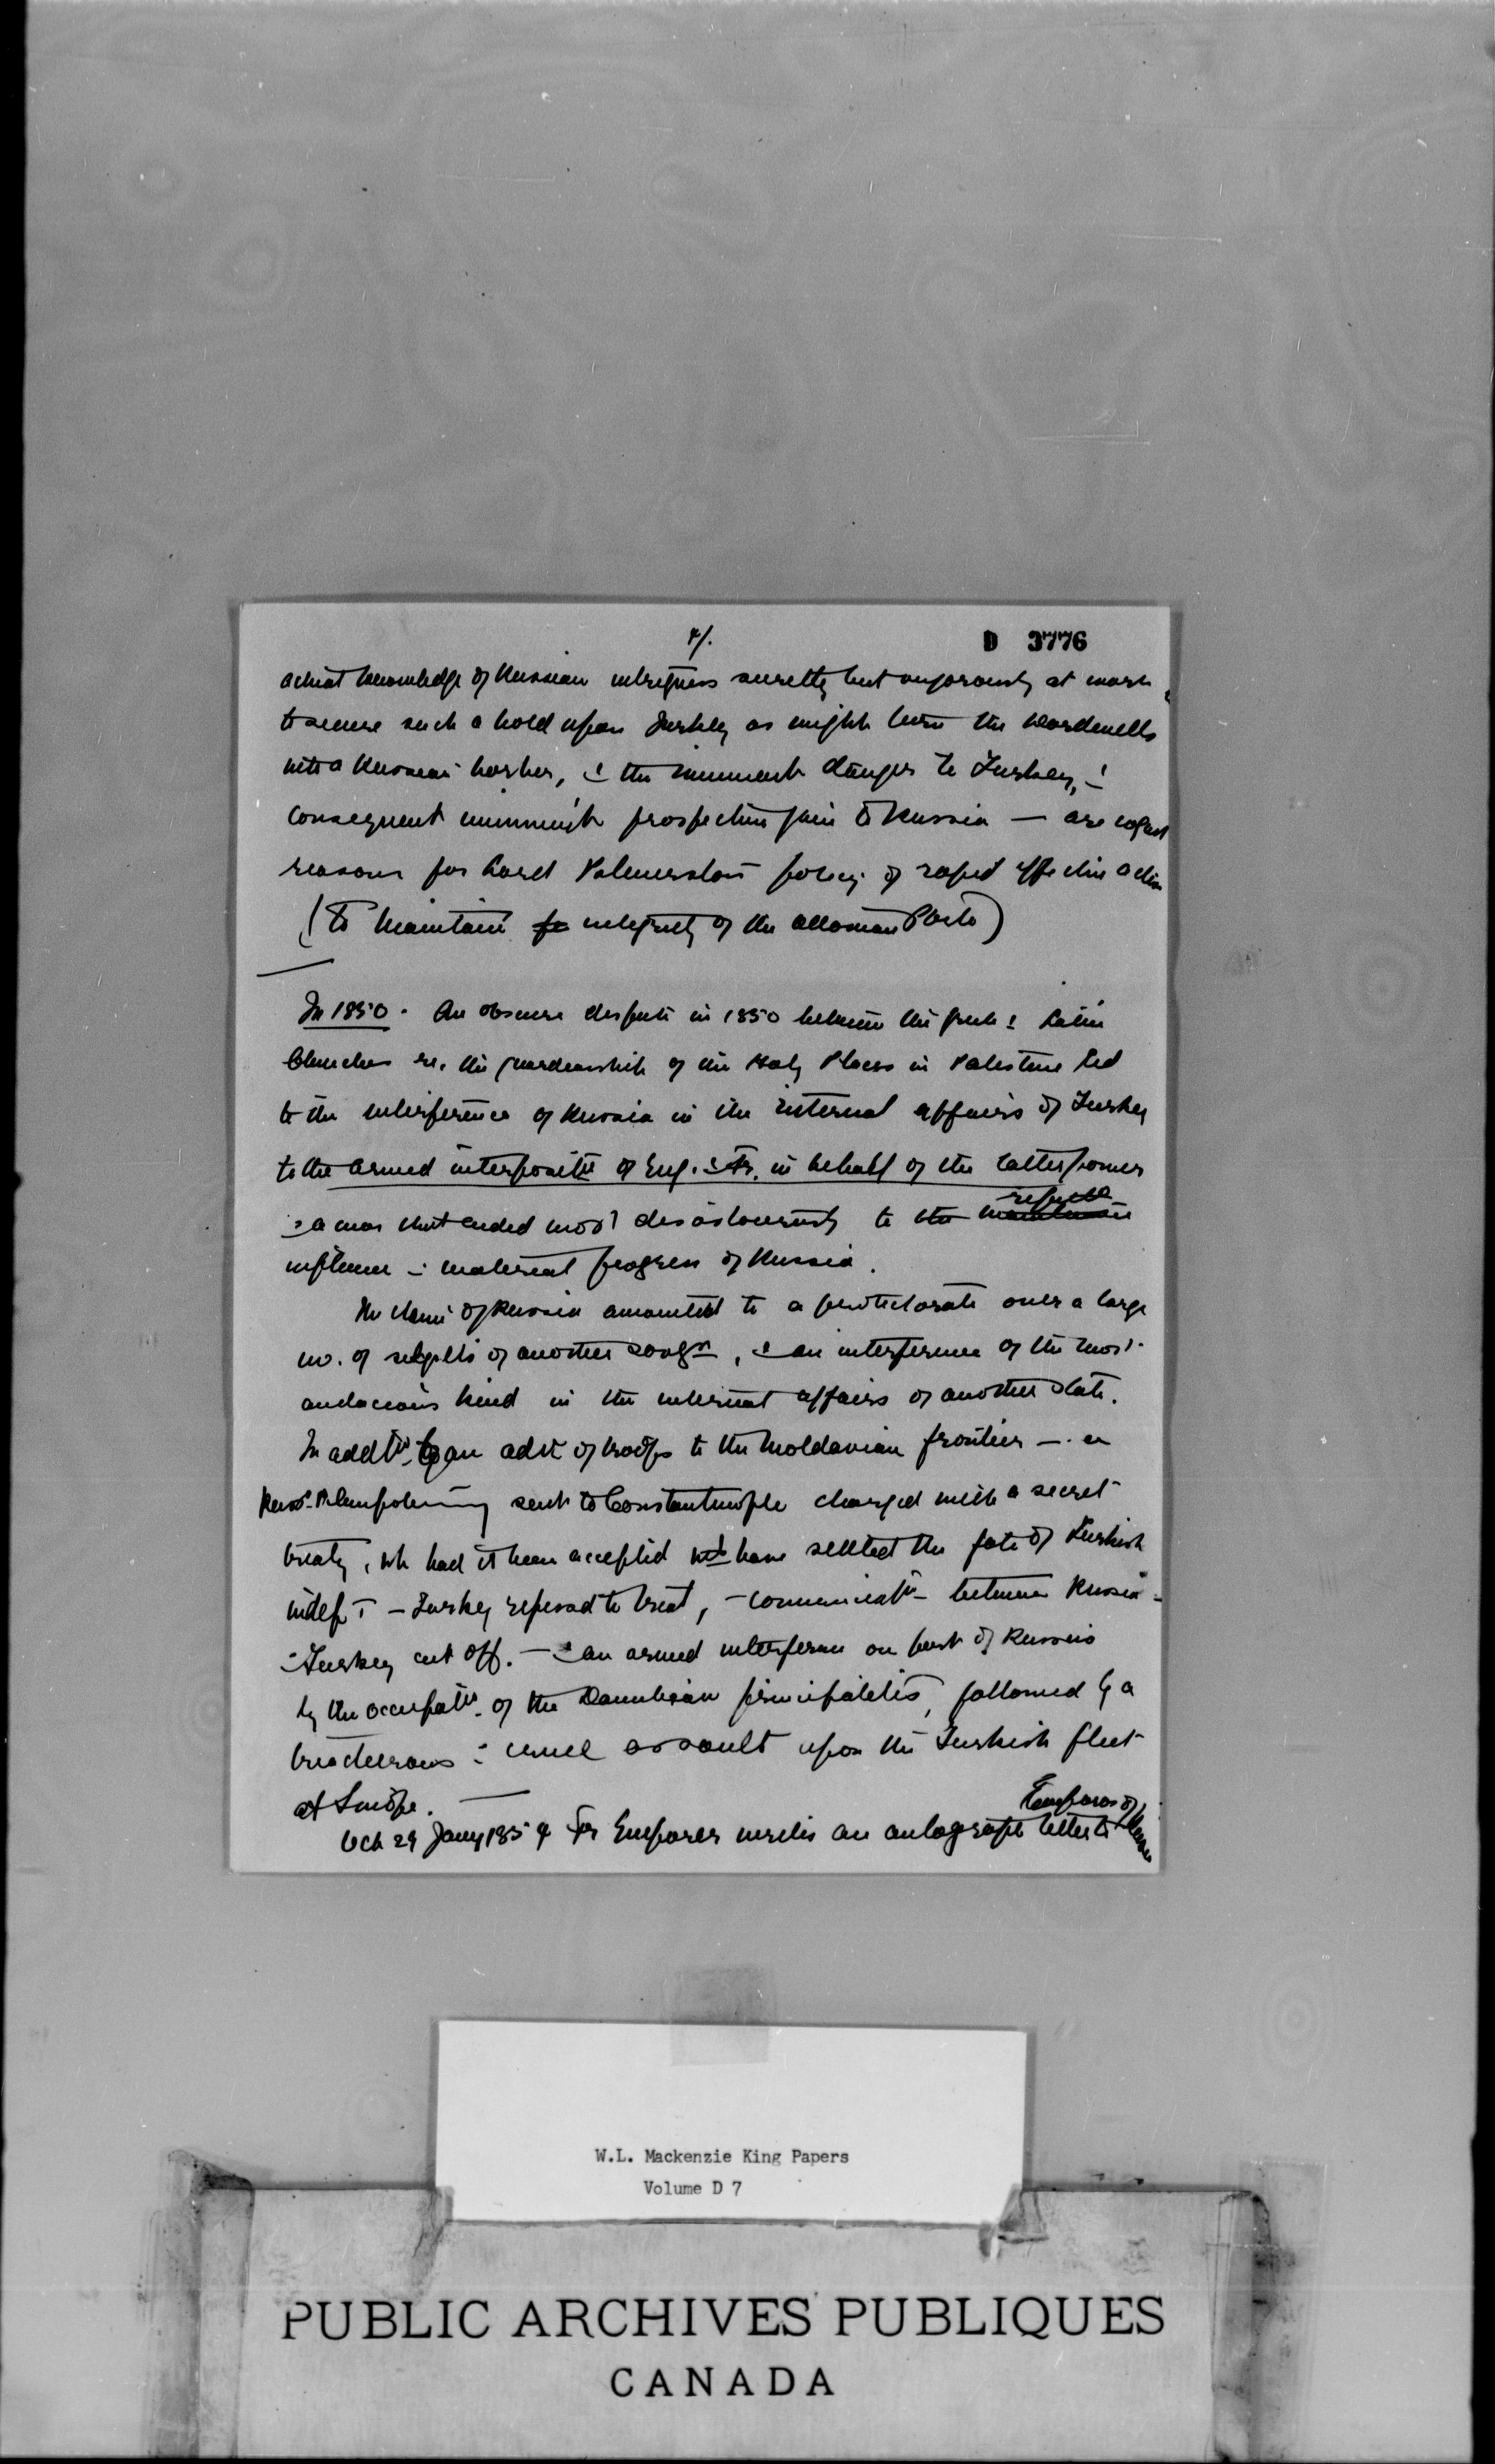 4/.
D 3776
actual knowledge of Russian intrigues secretly but vigorously at work
to secure such a hold upon Turkey as might turn the Dardanells
into a Russian harbor, & the imminent danger to Turkey, &
consequent imminent prospective gain to Russia — are cogent
reasons for Lord Palmerston policy of rapid effective action
(To maintain integrity of the Ottoman Porte)
In 1850. An obscure dispute in 1850 between the Greek & Latin
Churches re. the guardianship of the Holy Places in Palestine led
to the interference of Russia in the internal affairs of Turkey
to the armed interposit'n of Eng. & Fr. in behalf of the latter power
& a war that ended most disastrously to the
influence & material progress of Russia.
The claim of Russia amounted to a protectorate over a large
no. of subjects of another sovgn, & an interference of the most
audacious kind in the internal affairs of another state.
In addtn to an advce of troops to the Moldavian frontier — a
Russ. Plenipotentiary sent to Constantinople charged with a secret
treaty, wh had it been accepted wd have settled the fate of Turkish
indept — Turkey refused to treat, — communicatn between Russia
& Turkey cut off. — & an armed interference on part of Russia
by the occupatn of the Danubian principalities, followed by a
treacherous & cruel assault upon the Turkish fleet
at Sinope. —
Emperor of
29 Jany 1854 Fr Emperor writes an autograph letter to Russia
W.L. Mackenzie King Papers
Volume D 7
PUBLIC ARCHIVES PUBLIQUES
CANADA